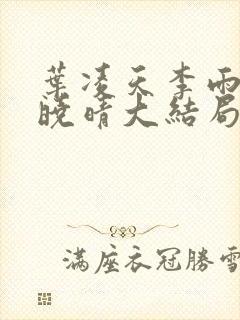 葉凌天李雨
曉晴大結局
滿座衣冠勝雪